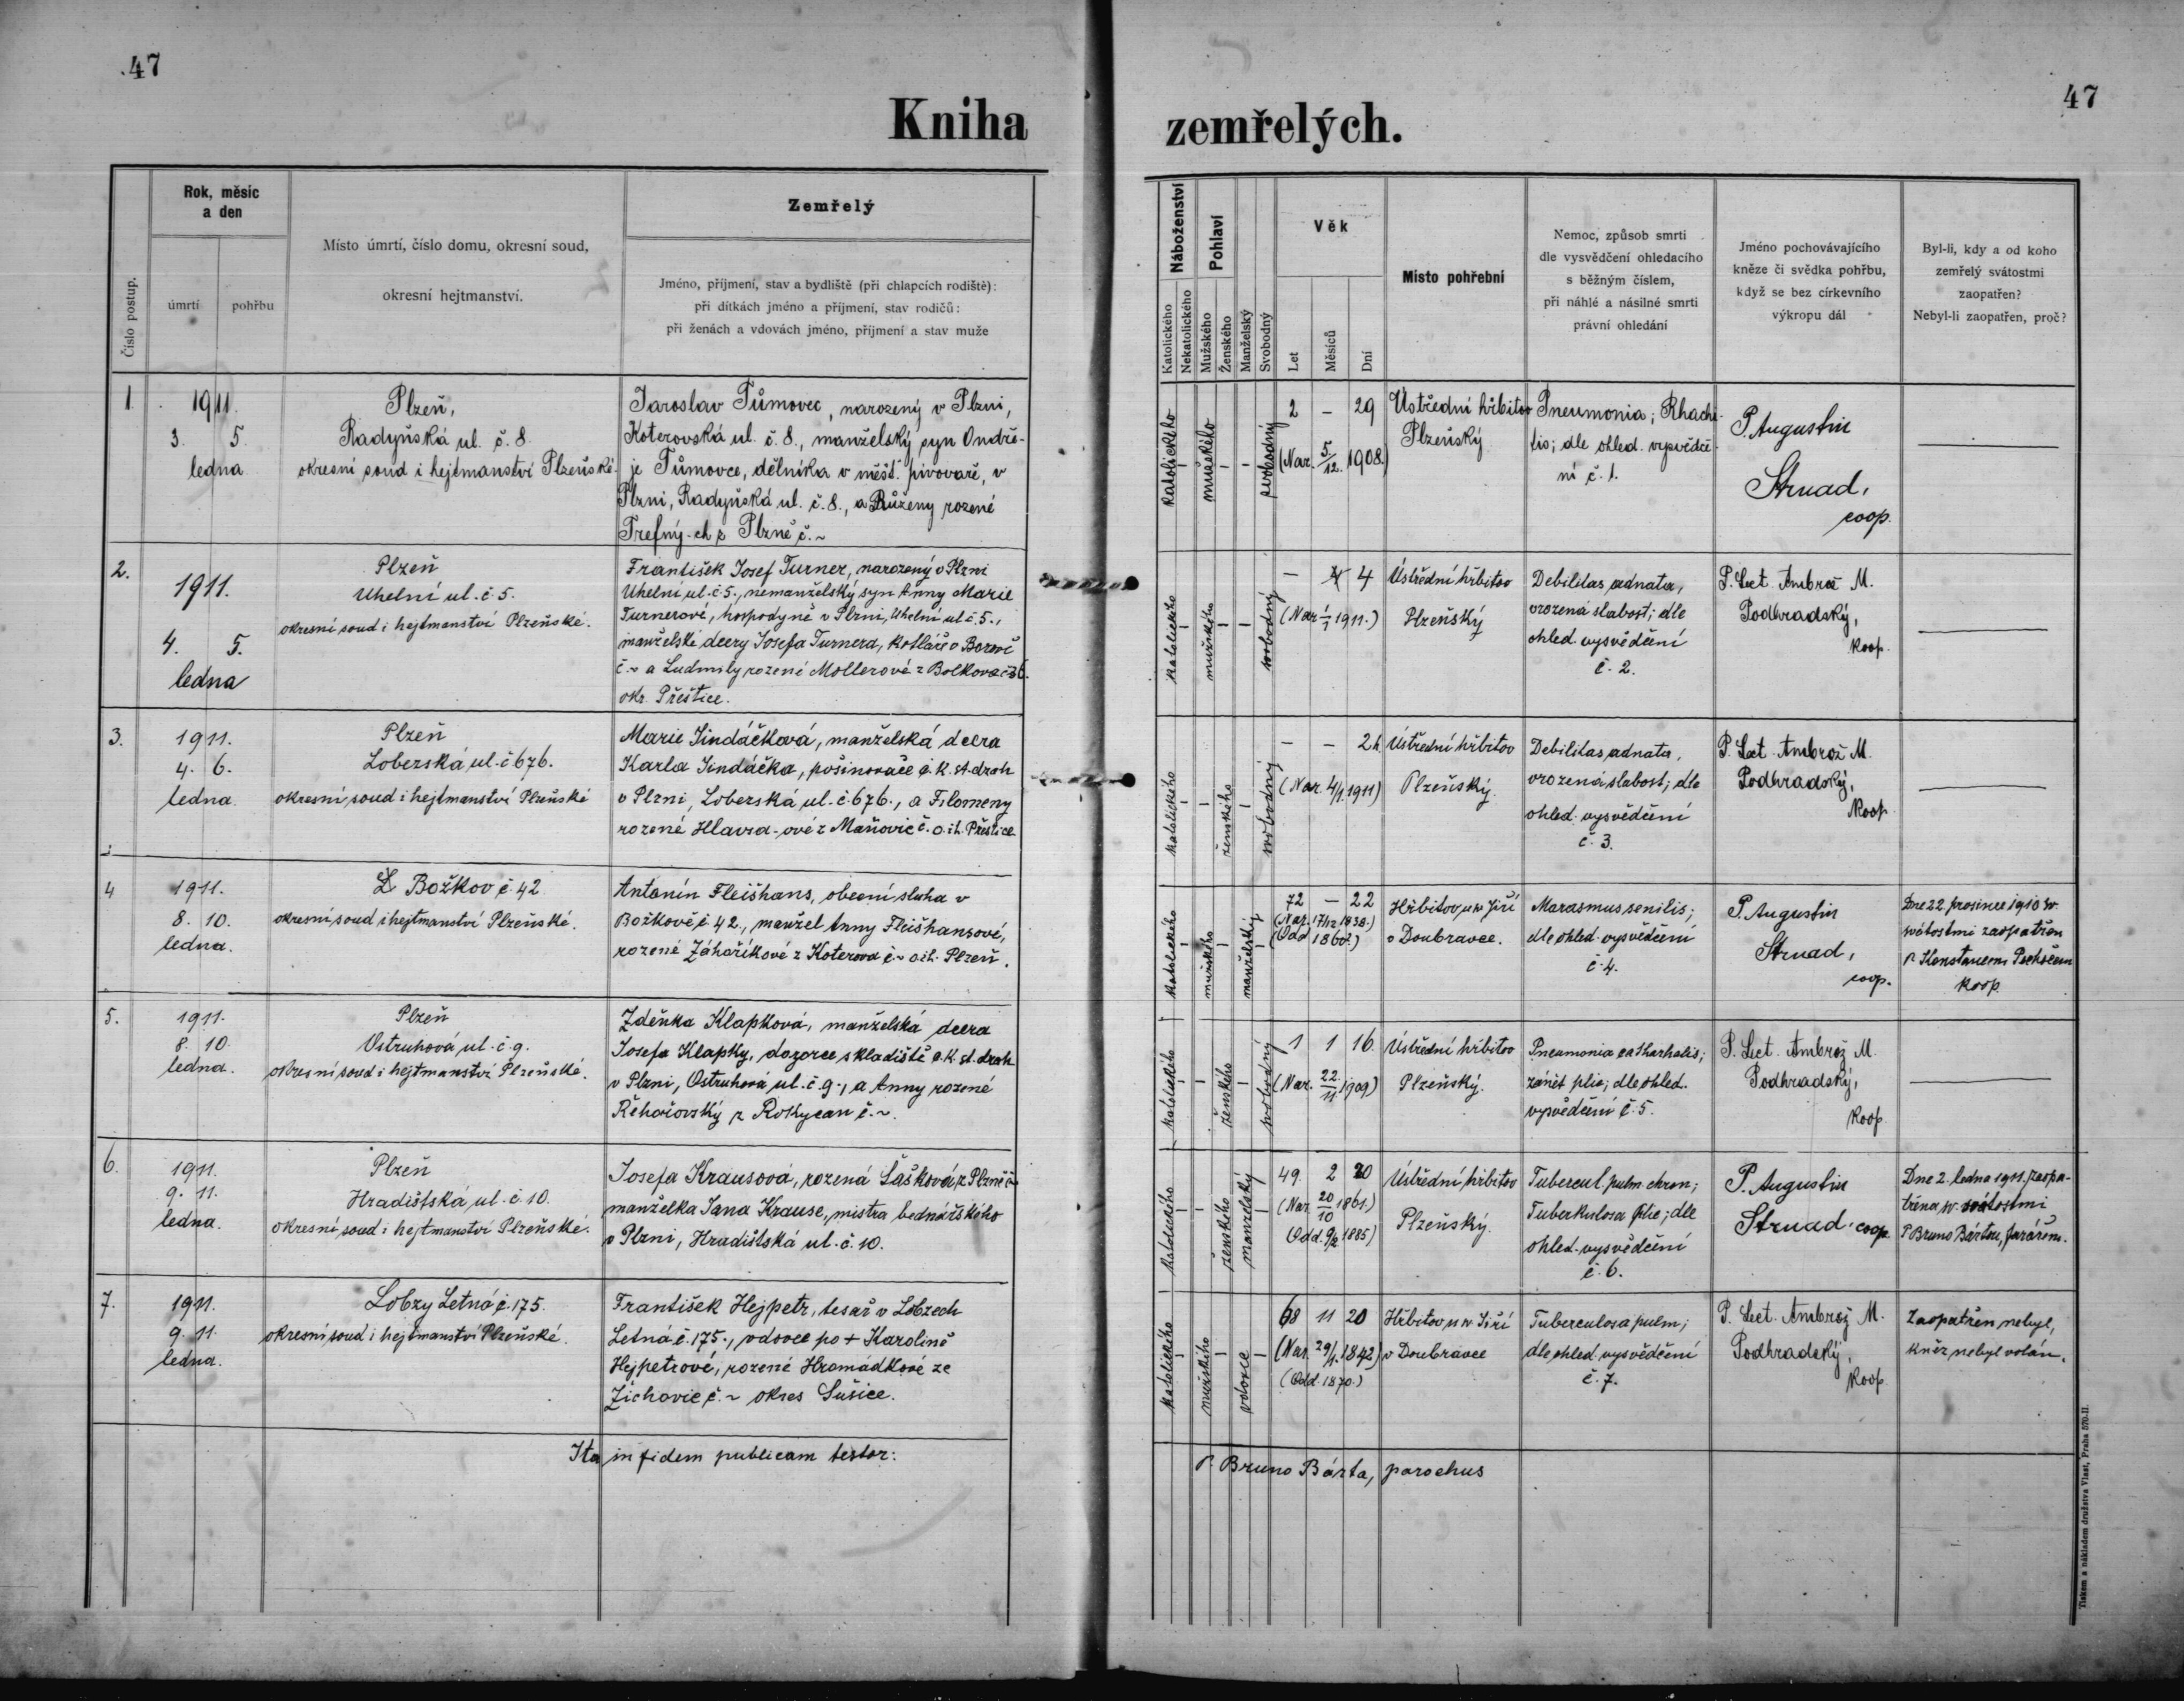 47
Kniha
Rok, měsíc
a den
Zemřelý
Číslo postup.
úmrtí
pohřbu
Místo úmrtí, číslo domu, okresní soud,
okresní hejtmanství.
Jméno, příjmení, stav a bydliště (při chlapcích rodiště):
při dítkách jméno a příjmení, stav rodičů:
při ženách a vdovách jméno, příjmení a stav muže
1.
1911.
3. 5.
ledna.
Plzeň,
Radyňská ul. č. 8
okresní soud i hejtmanství Plzeňské.
Jaroslav Tůmovec, narozený v Plzni,
Koterovská ul. č. 8., manželský syn Ondře-
je Tůmovce, dělníka v měšť. pivovaře, v
Plzni, Radyňská ul. č. 8., a Růženy rozené
Trefný-ch z Plzně č. ~
2.
1911.
4. 5.
ledna
Plzeň
Uhelní ul. č. 5.
okresní soud i hejtmanství Plzeňské.
František Josef Turner, narozený v Plzni
Uhelní ul. č. 5., nemanželský syn Anny Marie
Turnerové, hospodyně v Plzni, Uhelní ul. č. 5.,
manželské dcery Josefa Turnera, kotláře v
č. ~ a Ludmily rozené Mollerové z Bolkova č. 36.
okr. Přeštice.
3.
1911.
4. 6.
ledna.
Plzeň
Loberská ul. č 676.
okresní soud i hejtmanství Plzeňské
Marie Jindáčková, manželská dcera
Karla Jindáčka, pošinovače c. k. st. drah
v Plzni, Loberská ul. č. 676., a Filomeny
rozené Hlavra-ové z Maňovic č. o. ih. Přeštice
4
1911.
8. 10.
ledna.
Božkov č. 42
okresní soud i hejtmanství Plzeňské.
Antonín Fleišhans, obecní sluha v
Božkově č. 42., manžel Anny Fleišhansové,
rozené Záhoříkové z Koterova č. ~ o. ih. Plzeň.
5.
1911.
8. 10.
ledna.
Plzeň
Ostruhová ul. č. 9.
okresní soud i hejtmanství Plzeňské.
Zdeňka Klapková, manželská dcera
Josefa Klapky, dozorce skladiště c. k. st. drah
v Plzni, Ostruhová ul. č. 9., a Anny rozené
Řehořovský z Rokycan č. ~.
6.
1911.
9. 11.
ledna.
Plzeň
Hradišťská ul. č. 10.
okresní soud i hejtmanství Plzeňské.
Josefa Krausová, rozená Šašková z Plzně č ~
manželka Jana Krause, mistra bednářského
v Plzni, Hradišťská ul. č. 10.
7.
1911.
9. 11.
ledna.
Lobzy Letná č. 175.
okresní soud i hejtmanství Plzeňské.
František Hejpetr, tesař v Lobzech
Letná č. 175., vdovec po + Karolině
Hejpetrové, rozené Hromádkové ze
Žichovic č. ~ okres Sušice.
Ita in fidem publicam testor:
47
zemřelých.
Náboženství
Pohlaví
Věk
Katolického
Nekatolického
Mužského
Ženského
Manželský
Svobodný
Let
Měsíců
Dní
Místo pohřební
Nemoc, způsob smrti
dle vysvědčení ohledacího
s běžným číslem,
při náhlé a násilné smrti
právní ohledání
Jméno pochovávajícího
kněze či svědka pohřbu,
když se bez církevního
výkropu dál
Byl-li, kdy a od koho
zemřelý svátostmi
zaopatřen?
Nebyl-li zaopatřen, proč?
katolického – mužského – – svobodný
2 – 29
(Nar. 5/12. 1908.)
Ústřední hřbitov
Plzeňský
Pneumonia; Rhachi-
tis; dle ohled. vysvědče-
ní č. 1.
P. Augustin
Strnad,
coop.
katolického – mužského – – svobodný
– 4
(Nar. 1/1 1911.)
Ústřední hřbitov
Plzeňský
Debilitas adnata,
vrozená slabost; dle
ohled. vysvědčení
č. 2.
P. Lect. Ambrož M.
Podhradský,
koop.
katolického – – ženského – svobodný
– – 2 h.
(Nar. 4/1. 1911)
Ústřední hřbitov
Plzeňský.
Debilitas adnata,
vrozená slabost; dle
ohled. vysvědčení
č. 3.
P. Lect. Ambrož M.
Podhradský,
koop
katolického – mužského – manželský –
72 – 22
(Nar. 17/12 1838.)
(Odd. 1860?)
Hřbitov u sv Jiří
v Doubravce.
Marasmus senilis;
dle ohled. vysvědčení
č. 4.
P. Augustin
Strnad,
coop.
Dne 22 prosince 1910 sv.
svátostmi zaopatřen
koop.
katolického – – ženského – svobodný
1 1 16.
(Nar. 22/11 1909)
Ústřední hřbitov
Plzeňský.
Pneumonia catharhalis;
zánět plic; dle ohled.
vysvědčení č. 5.
P. Lect. Ambrož M.
Podhradský,
koop
katolického – – ženského manželský –
49. 2 20
(Nar. 20/10 1861.)
(Odd. 9/2 1885)
Ústřední hřbitov
Plzeňský.
Tubercul. pulm. chron;
Tuberkulosa plic; dle
ohled. vysvědčení
č. 6.
P. Augustin
Strnad coop
Dne 2. ledna 1911. zaopa-
třena sv. svátostmi
P Bruno Bártou, farářem.
katolického – mužského – vdovce –
68 11 20
(Nar. 29/1. 1842)
(Odd. 1870.)
Hřbitov u sv Jiří
v Doubravce
Tuberculosa pulm;
dle ohled. vysvědčení
č. 7.
P. Lect. Ambrož M.
Podhradský,
koop
Zaopatřen nebyl,
kněz nebyl volán.
P. Bruno Bárta, parochus
Tiskem a nákladem družstva Vlast, Praha 570-II.